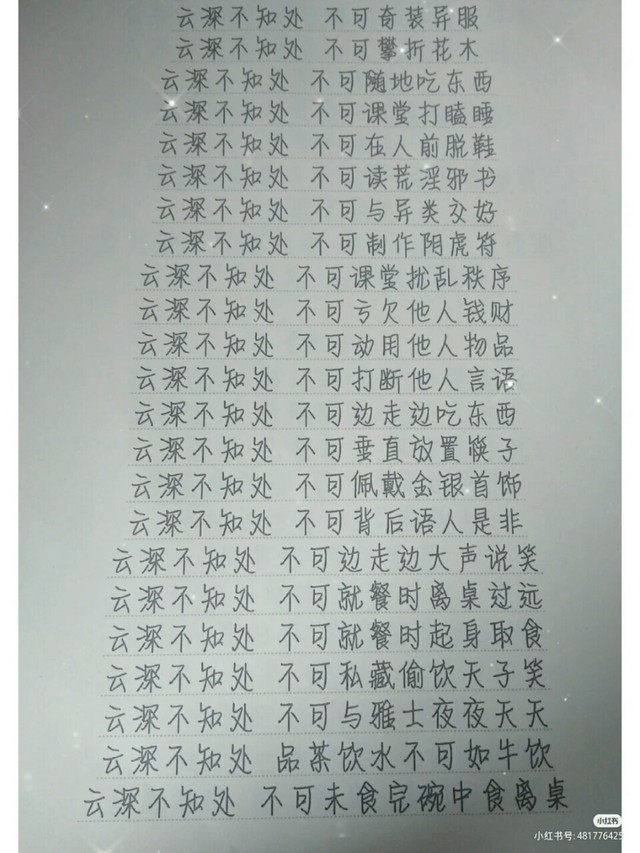 云深不知处 不可奇装异服
云深不知处 不可攀折花木
云深不知处 不可随地吃东西
云深不知处 不可课堂打瞌睡
云深不知处 不可在人前脱鞋
云深不知处 不可读荒淫邪书
云深不知处 不可与异类交好
云深不知处 不可制作阴虎符
云深不知处 不可课堂扰乱秩序
云深不知处 不可亏欠他人钱财
云深不知处 不可动用他人物品
云深不知处 不可打断他人言语
云深不知处 不可边走边吃东西
云深不知处 不可垂直放置筷子
云深不知处 不可佩戴金银首饰
云深不知处 不可背后语人是非
云深不知处 不可边走边大声说笑
云深不知处 不可就餐时离桌过远
云深不知处 不可就餐时起身取食
云深不知处 不可私藏偷饮天子笑
云深不知处 不可与雅士夜夜天天
云深不知处 品茶饮水不可如牛饮
云深不知处 不可未食完碗中食离桌
小红书
小红书号: 481776425